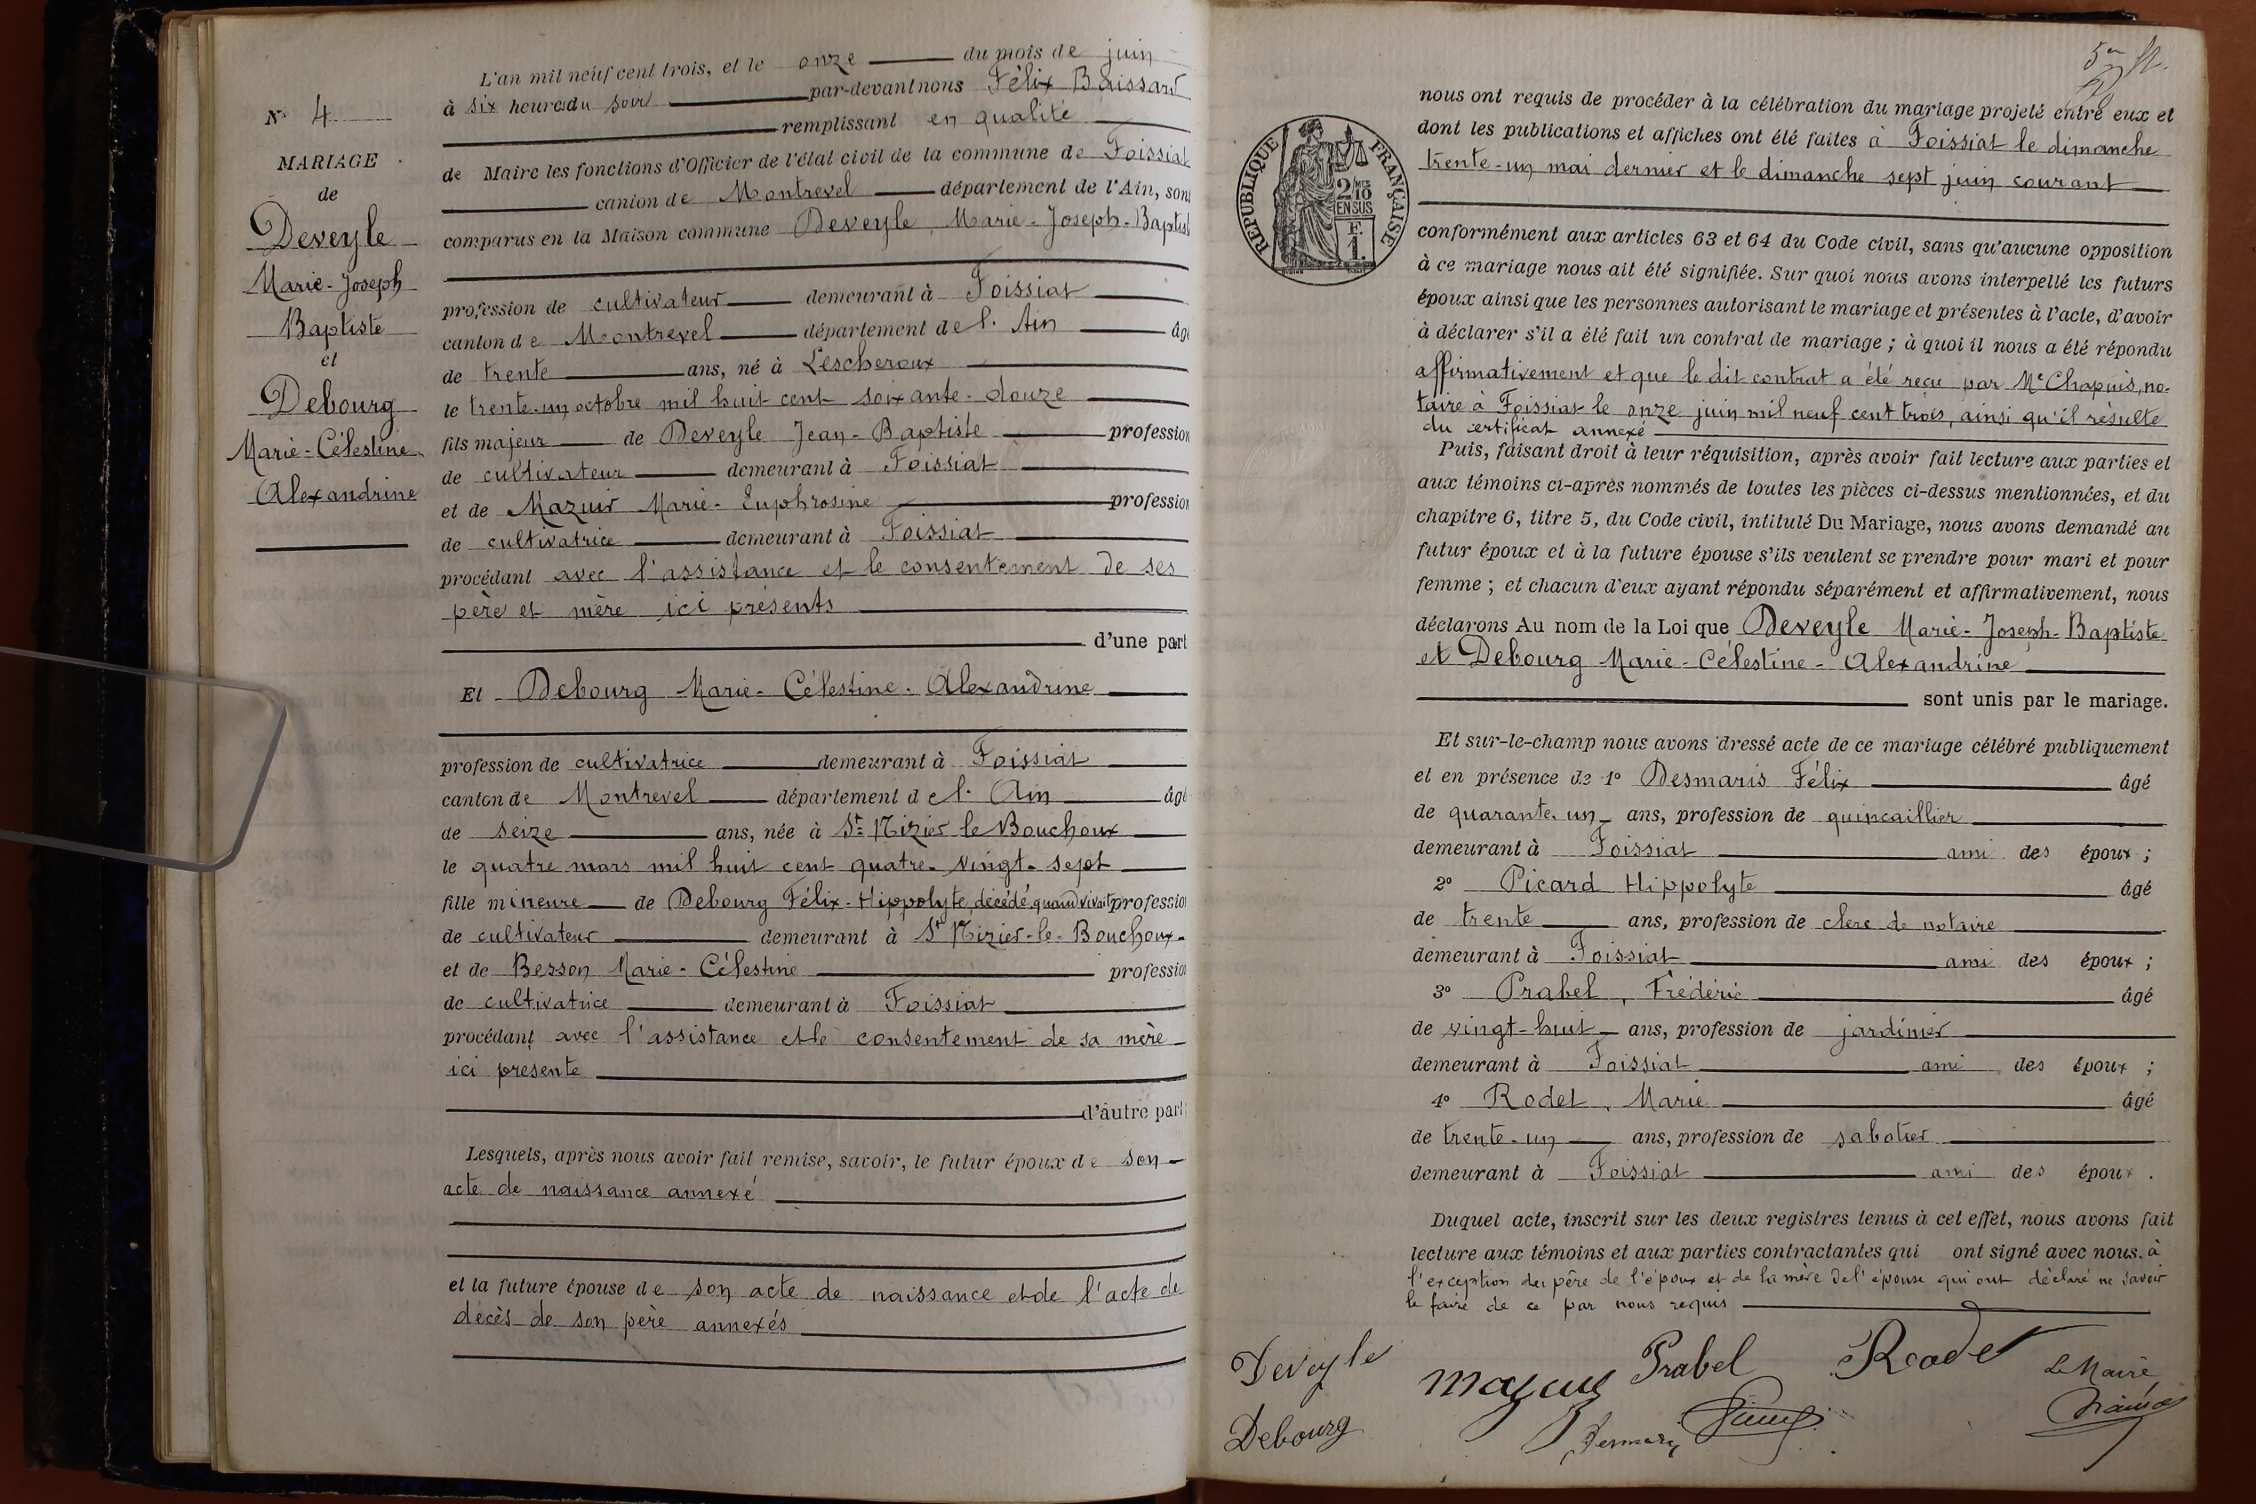 N° 4
MARIAGE
de
Deveyle
Marie-Joseph
Baptiste
et
Debourg
Marie-Célestine
Alexandrine
L'an mil neuf cent trois, et le onze du mois de juin
à six heures du soir par-devant nous Félix Buissard
remplissant en qualité
de Maire les fonctions d'Officier de l'état civil de la commune de Foissiat
canton de Montrevel département de l'Ain, sont
comparus en la Maison commune Deveyle, Marie-Joseph-Baptiste
profession de cultivateur demeurant à Foissiat
canton de Montrevel département de l'Ain âgé
de trente ans, né à Lescheroux
le trente-un octobre mil huit cent soixante-douze
fils majeur de Deveyle Jean-Baptiste profession
de cultivateur demeurant à Foissiat
et de Mazuir Marie-Euphrosine profession
de cultivatrice demeurant à Foissiat
procédant avec l'assistance et le consentement de ses
père et mère ici présents
d'une part
Et Debourg Marie-Célestine-Alexandrine
profession de cultivatrice demeurant à Foissiat
canton de Montrevel département de l'Ain âgé
de seize ans, née à St Nizier le Bouchoux
le quatre mars mil huit cent quatre-vingt-sept
fille mineure de Debourg Félix-Hippolyte, décédé, quand vivait profession
de cultivateur demeurant à St Nizier-le-Bouchoux
et de Besson Marie-Célestine profession
de cultivatrice demeurant à Foissiat
procédant avec l'assistance et le consentement de sa mère
ici présente
d'autre part
Lesquels, après nous avoir fait remise, savoir, le futur époux de son
acte de naissance annexé
et la future épouse de son acte de naissance et de l'acte de
décès de son père annexés
nous ont requis de procéder à la célébration du mariage projeté entre eux et
dont les publications et affiches ont été faites à Foissiat le dimanche
trente-un mai dernier et le dimanche sept juin courant
RÉPUBLIQUE FRANÇAISE
2/10 MES
EN SUS
F.
1.
conformément aux articles 63 et 64 du Code civil, sans qu'aucune opposition
à ce mariage nous ait été signifiée. Sur quoi nous avons interpellé les futurs
époux ainsi que les personnes autorisant le mariage et présentes à l'acte, d'avoir
à déclarer s'il a été fait un contrat de mariage ; à quoi il nous a été répondu
affirmativement et que le dit contrat a été reçu par Me Chapuis, no-
taire à Foissiat le onze juin mil neuf cent trois, ainsi qu'il résulte
du certificat annexé
Puis, faisant droit à leur réquisition, après avoir fait lecture aux parties et
aux témoins ci-après nommés de toutes les pièces ci-dessus mentionnées, et du
chapitre 6, titre 5, du Code civil, intitulé Du Mariage, nous avons demandé au
futur époux et à la future épouse s'ils veulent se prendre pour mari et pour
femme ; et chacun d'eux ayant répondu séparément et affirmativement, nous
déclarons Au nom de la Loi que Deveyle Marie-Joseph-Baptiste
et Debourg Marie-Célestine-Alexandrine
sont unis par le mariage.
Et sur-le-champ nous avons dressé acte de ce mariage célébré publiquement
et en présence de 1° Desmaris Félix âgé
de quarante-un ans, profession de quincaillier
demeurant à Foissiat ami des époux ;
2° Picard Hippolyte âgé
de trente ans, profession de clerc de notaire
demeurant à Foissiat ami des époux ;
3° Prabel, Frédéric âgé
de vingt-huit ans, profession de jardinier
demeurant à Foissiat ami des époux ;
4° Rodet, Marie âgé
de trente-un ans, profession de sabotier
demeurant à Foissiat ami des époux.
Duquel acte, inscrit sur les deux registres tenus à cet effet, nous avons fait
lecture aux témoins et aux parties contractantes qui ont signé avec nous, à
l'exception du père de l'époux et de la mère de l'épouse qui ont déclaré ne savoir
le faire de ce par nous requis
Deveyle Prabel Rodet Le Maire
Debourg